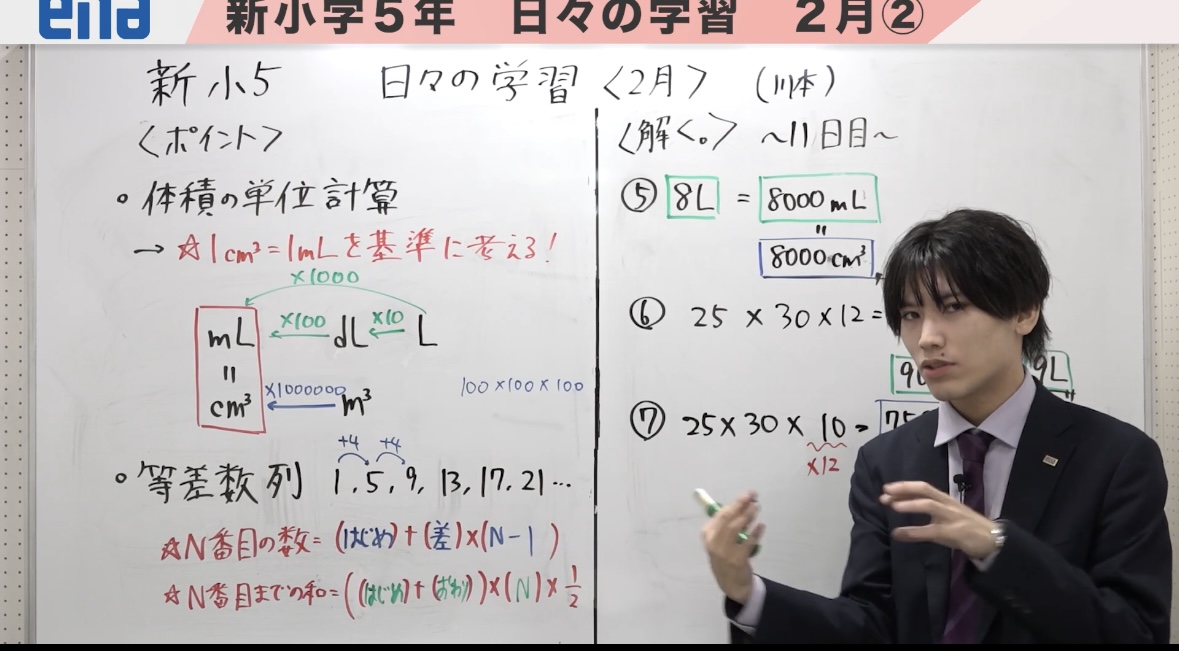 ena
新小学5年　日々の学習　2月②
新小5　日々の学習〈2月〉（川本）
〈ポイント〉
。体積の単位計算
→ ☆1cm³=1mLを基準に考える!
×1000
mL ×100 dL ×10 L
=
cm³ ×1000000 m³
100×100×100
。等差数列 1, 5, 9, 13, 17, 21…
+4 +4
☆N番目の数=(はじめ)+(差)×(N-1)
☆N番目までの和=((はじめ)+(おわり))×(N)×1/2
〈解く。〉 ～11日目～
⑤ 8L = 8000mL
=
8000cm³
⑥ 25×30×12=
9L
⑦ 25×30×10=
×12